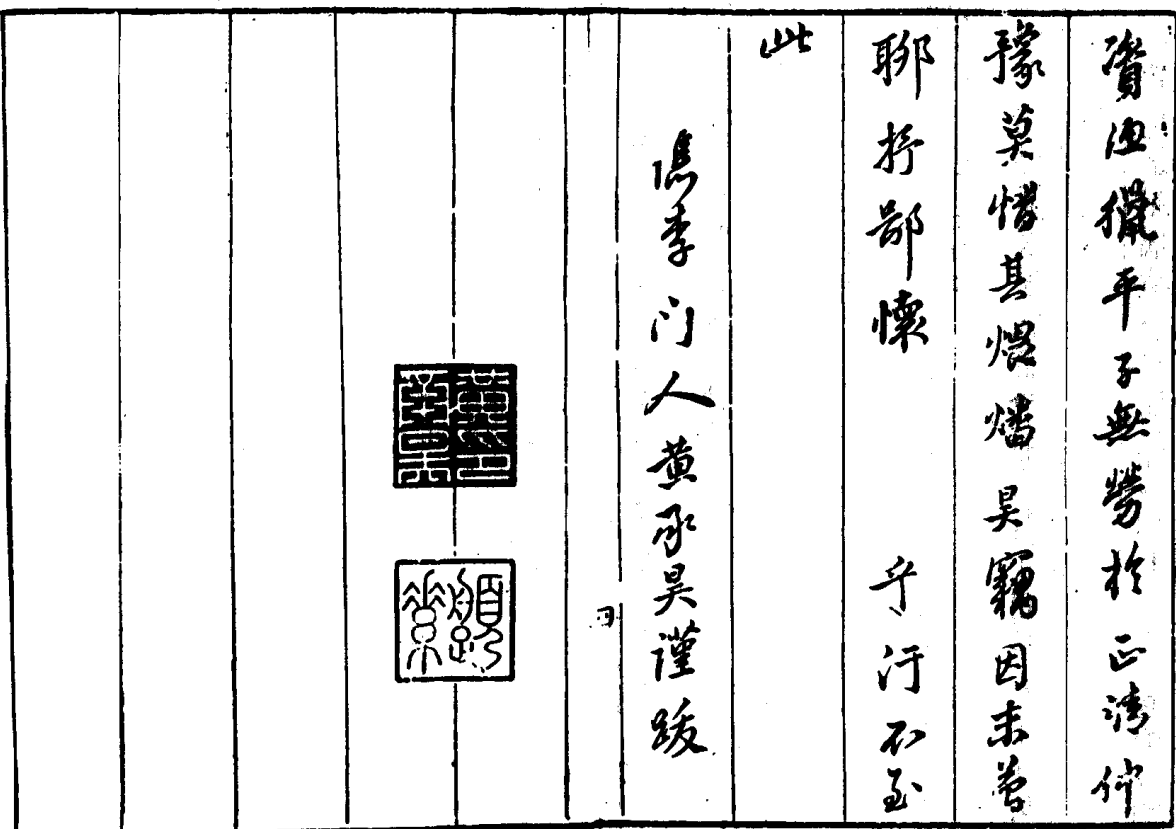 資漁獵平子無勞於正清仲
豫莫惜其煨燼昊竊因未曾
聊抒鄙懷 乎汙不至
此
季門人黃承昊謹跋